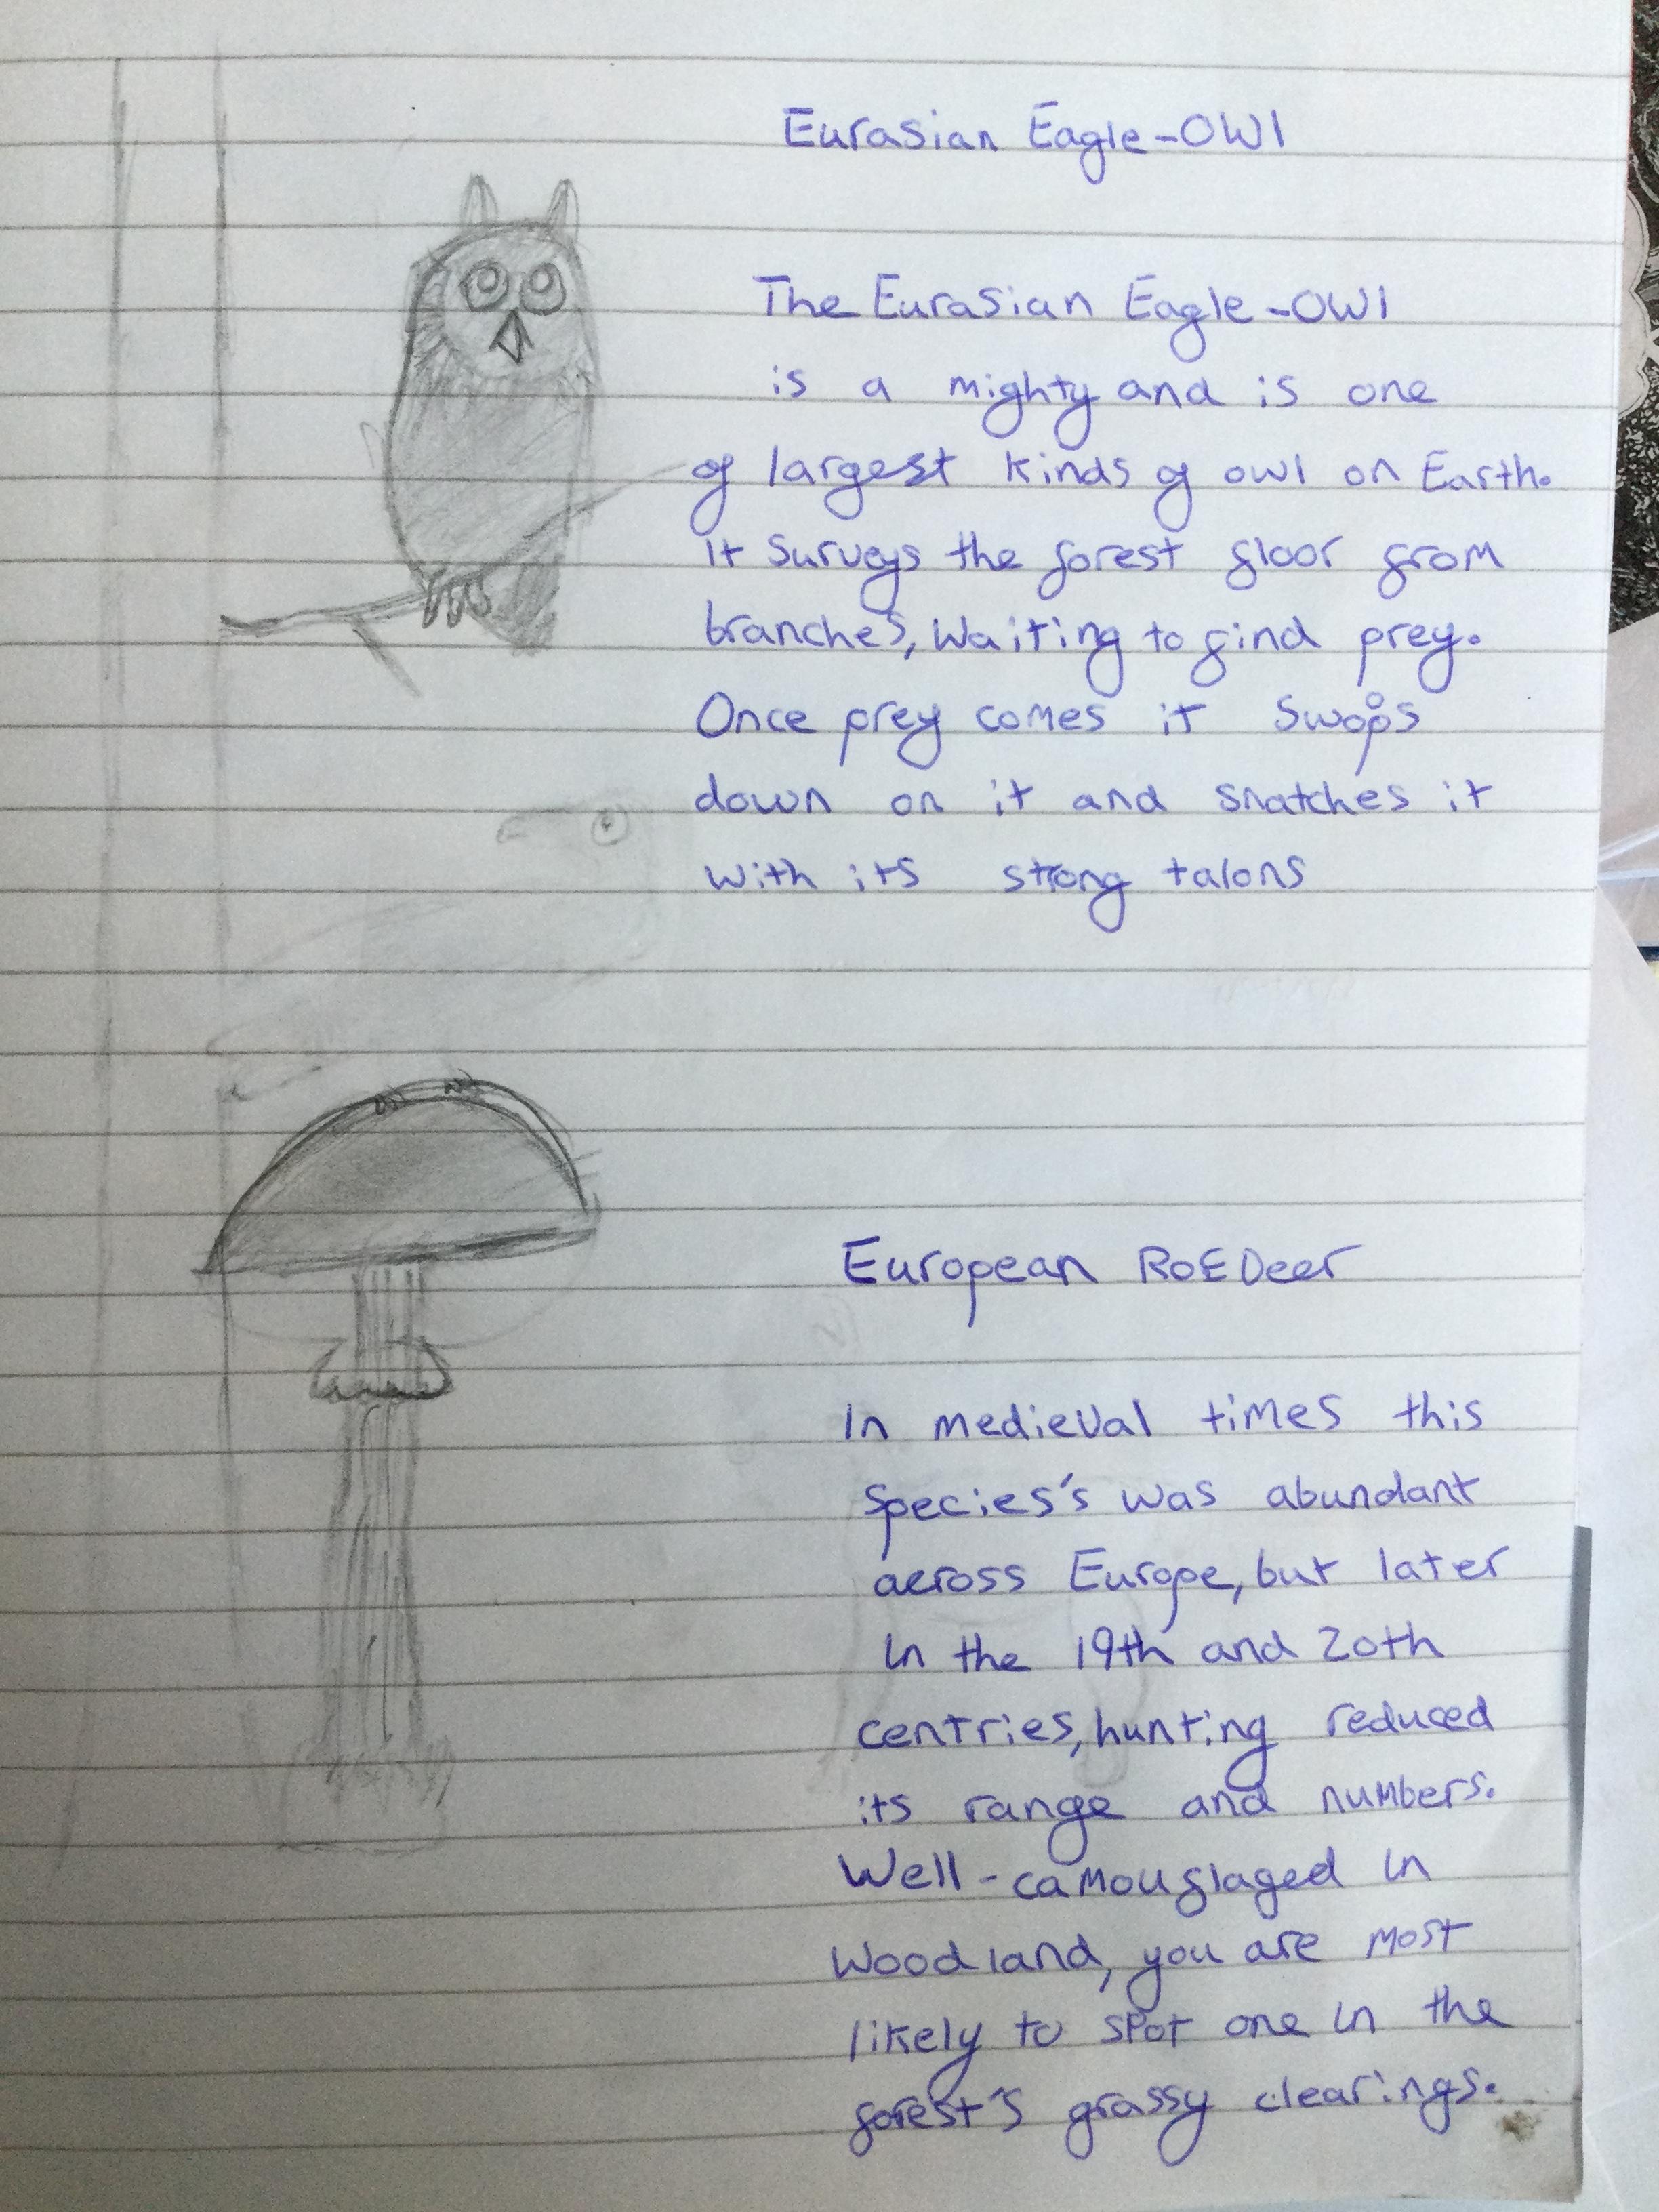 Eurasian Eagle-Owl
The Eurasian Eagle-Owl
is a mighty and is one
of largest kinds of owl on Earth.
It surveys the forest floor from
branches, waiting to find prey.
Once prey comes it swoops
down on it and snatches it
with its strong talons
European RoE Deer
In medieval times this
species's was abundant
across Europe, but later
in the 19th and 20th
centries, hunting reduced
its range and numbers.
Well-camouflaged in
woodland, you are most
likely to spot one in the
forest's grassy clearings.